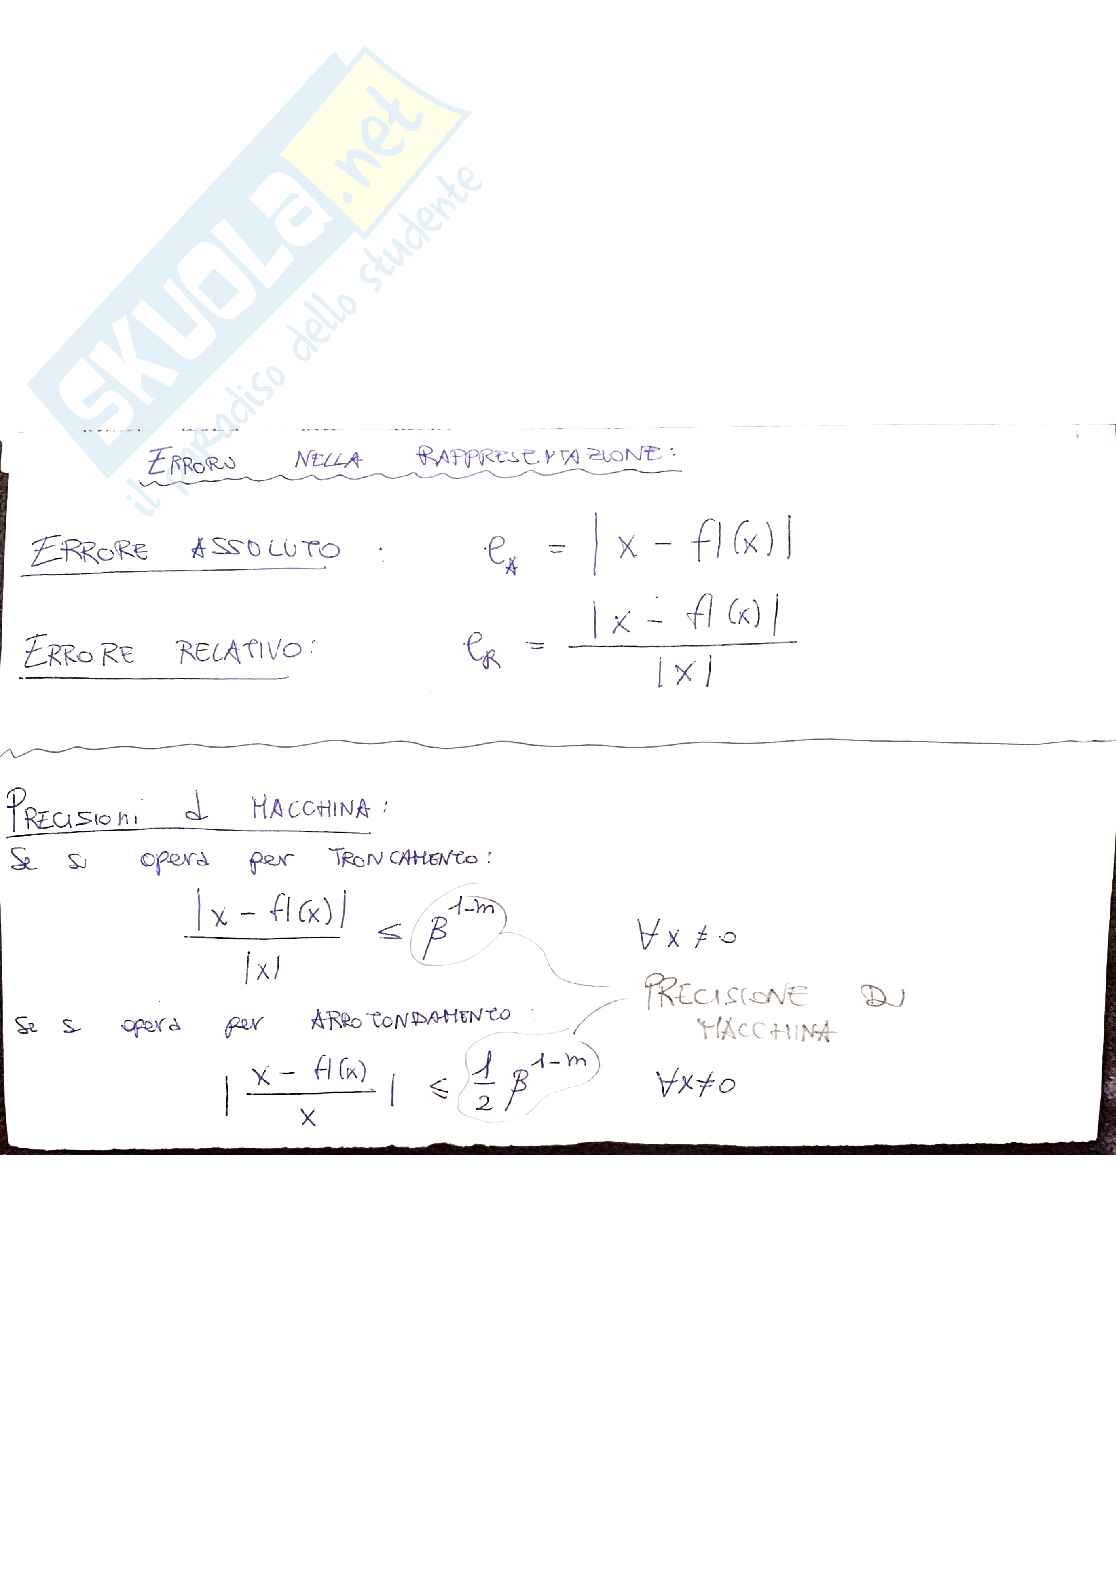 SKUOLA.net
il paradiso dello studente
ERRORI NELLA RAPPRESENTAZIONE:
ERRORE ASSOLUTO : e_A = |x - fl(x)|
ERRORE RELATIVO: e_R = |x - fl(x)| / |x|
PRECISIONI di MACCHINA:
Se si opera per TRONCAMENTO:
|x - fl(x)| / |x| ≤ β^{1-m} ∀x ≠ 0
PRECISIONE DI
MACCHINA
Se si opera per ARROTONDAMENTO:
|(x - fl(x)) / x| ≤ 1/2 β^{1-m} ∀x≠0